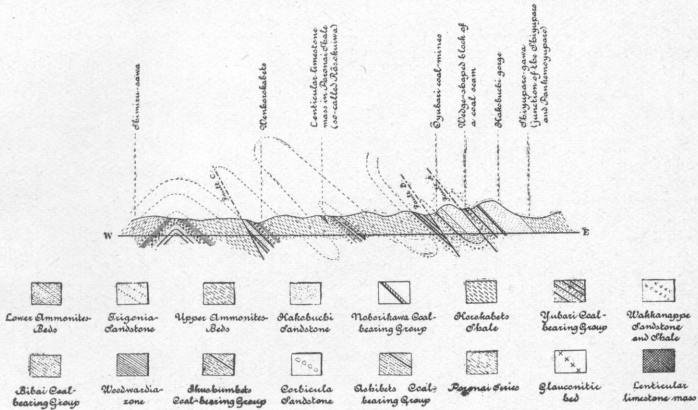 Shimizu-sawa
Wenkorokabets
Lenticular-limestone
mass in Poronai Shale
(so-called Rōsokuiwa)
Ōyubari coal-mines
Wedge-shaped block of
a coal seam
Hakobuchi gorge
Shiyuparo-gawa
(junction of the Shiyuparo
and Pankemoyuparo)
W
E
Lower Ammonites-
Beds
Trigonia-
Sandstone
Upper Ammonites-
Beds
Hakobuchi
Sandstone
Noborikawa Coal-
bearing Group
Horokabets
Shale
Yubari Coal-
bearing Group
Wakkanappe
Sandstone
and Shale
Bibai Coal-
bearing Group
Woodwardia-
zone
Ikushumbets
Coal-bearing Group
Corbicula
Sandstone
Ashibets Coal-
bearing Group
Poronai Series
Glauconitic
bed
Lenticular
limestone mass